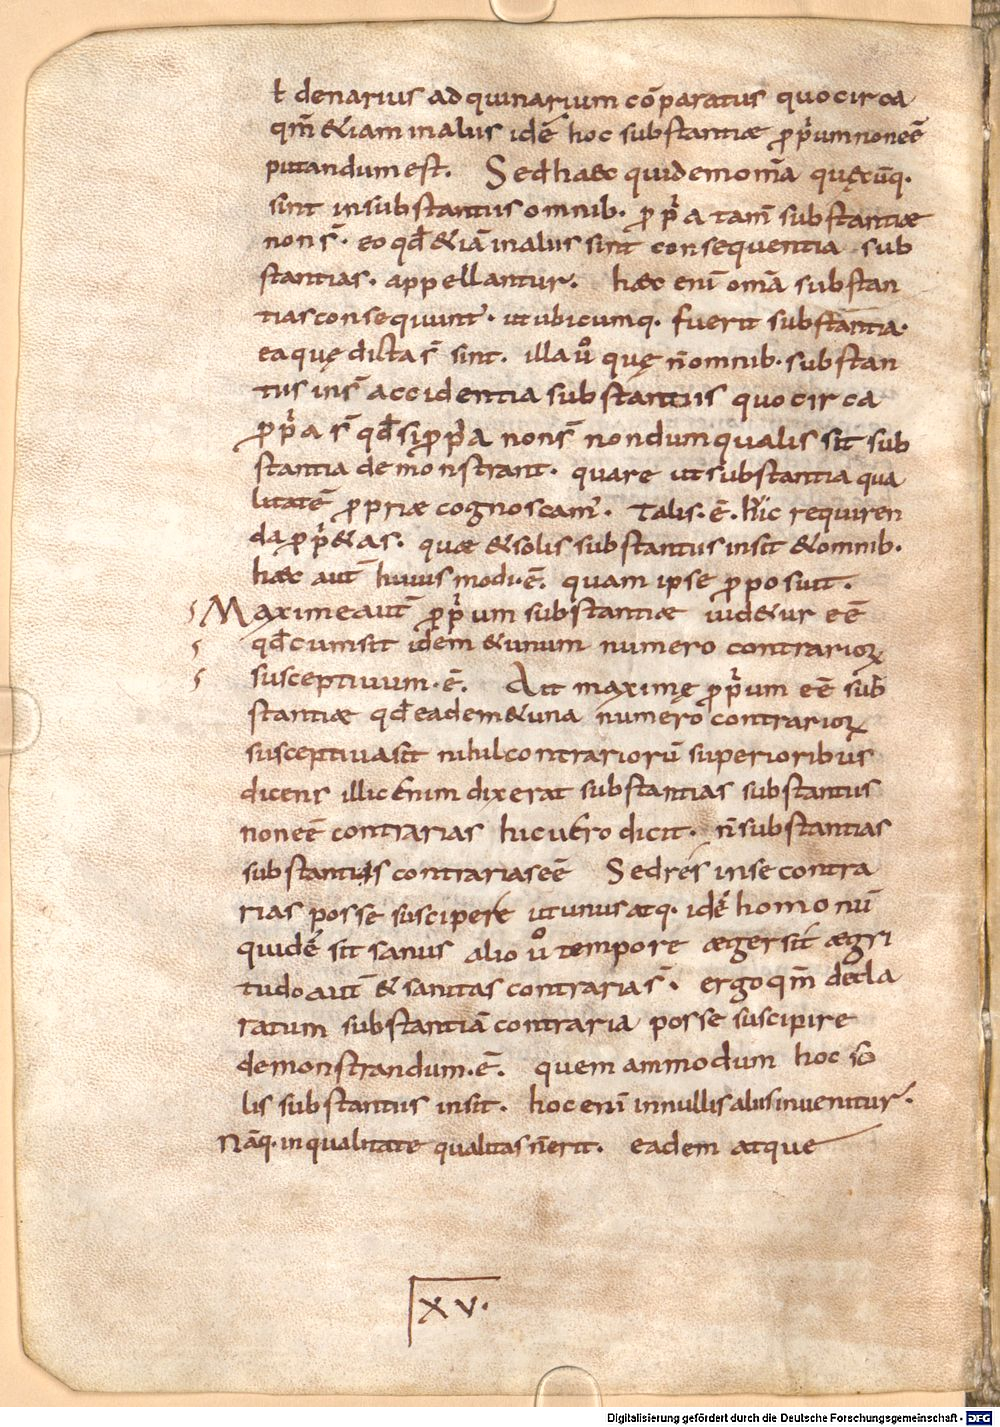 ł denarius ad quinarium cōparatus quocirca
qm̄ &iam in aliis idē hoc substantiæ ꝓpͥum non eē
putandum est. Sed hæc quidem om̄a quęcūq·
sint in substantiis omnib· ꝓpͥa tam̄ substantiæ
non s̄· eo qđ &iā in aliis sint consequentia sub
stantias· appellantur· hæc eni omā substan
tias consequunt̄· ut ubicumq· fuerit substantia·
ea quę dicta s̄ sint· illa ů quę n̄ omnib· substan
tiis ins̄ accidentia substantiis quocirca
ꝓpͥa s̄ qđ si ꝓpͥa non s̄ nondum qualis sit sub
stantia demonstrant· quare ut substantia qua
litatē propriæ cognoscam̄· Talis·ē· hic requiren
da ꝓpͥ&as· quæ & solis substantiis insit & omnib·
hæc aut̄ huius modi·ē· quam ipse proposuit·
Maxime aut̄ ꝓpͥum substantiæ uid&ur eē
qđ cum sit idem & unum numero contrarioꝝ
susceptiuum·ē· Ait maximę ꝓpͥum eē sub
stantiæ qđ eadem & una numero contrarioꝝ
susceptiua sit nihil contrariorū superioribus
dicens illic enim dixerat substantias substantiis
non eē contrarias hic uero dicit· n̄ substantias
substantiis contrarias eē Sed res in se contra
rias posse suscipere ut unus atq· idē homo nū
quidē sit sanus alio ů tempore æger sit ægri
tudo aut̄ & sanitas contraria s̄· ergo qm̄ decla
ratum substantiā contraria posse suscipire
demonstrandum·ē· quem ammodum hoc so
lis substantiis insit· hoc eni in nullis aliis inuenitur·
Nāq· in qualitate qualitas n̄ erit· eadem atque
XV·
Digitalisierung gefördert durch die Deutsche Forschungsgemeinschaft - DFG